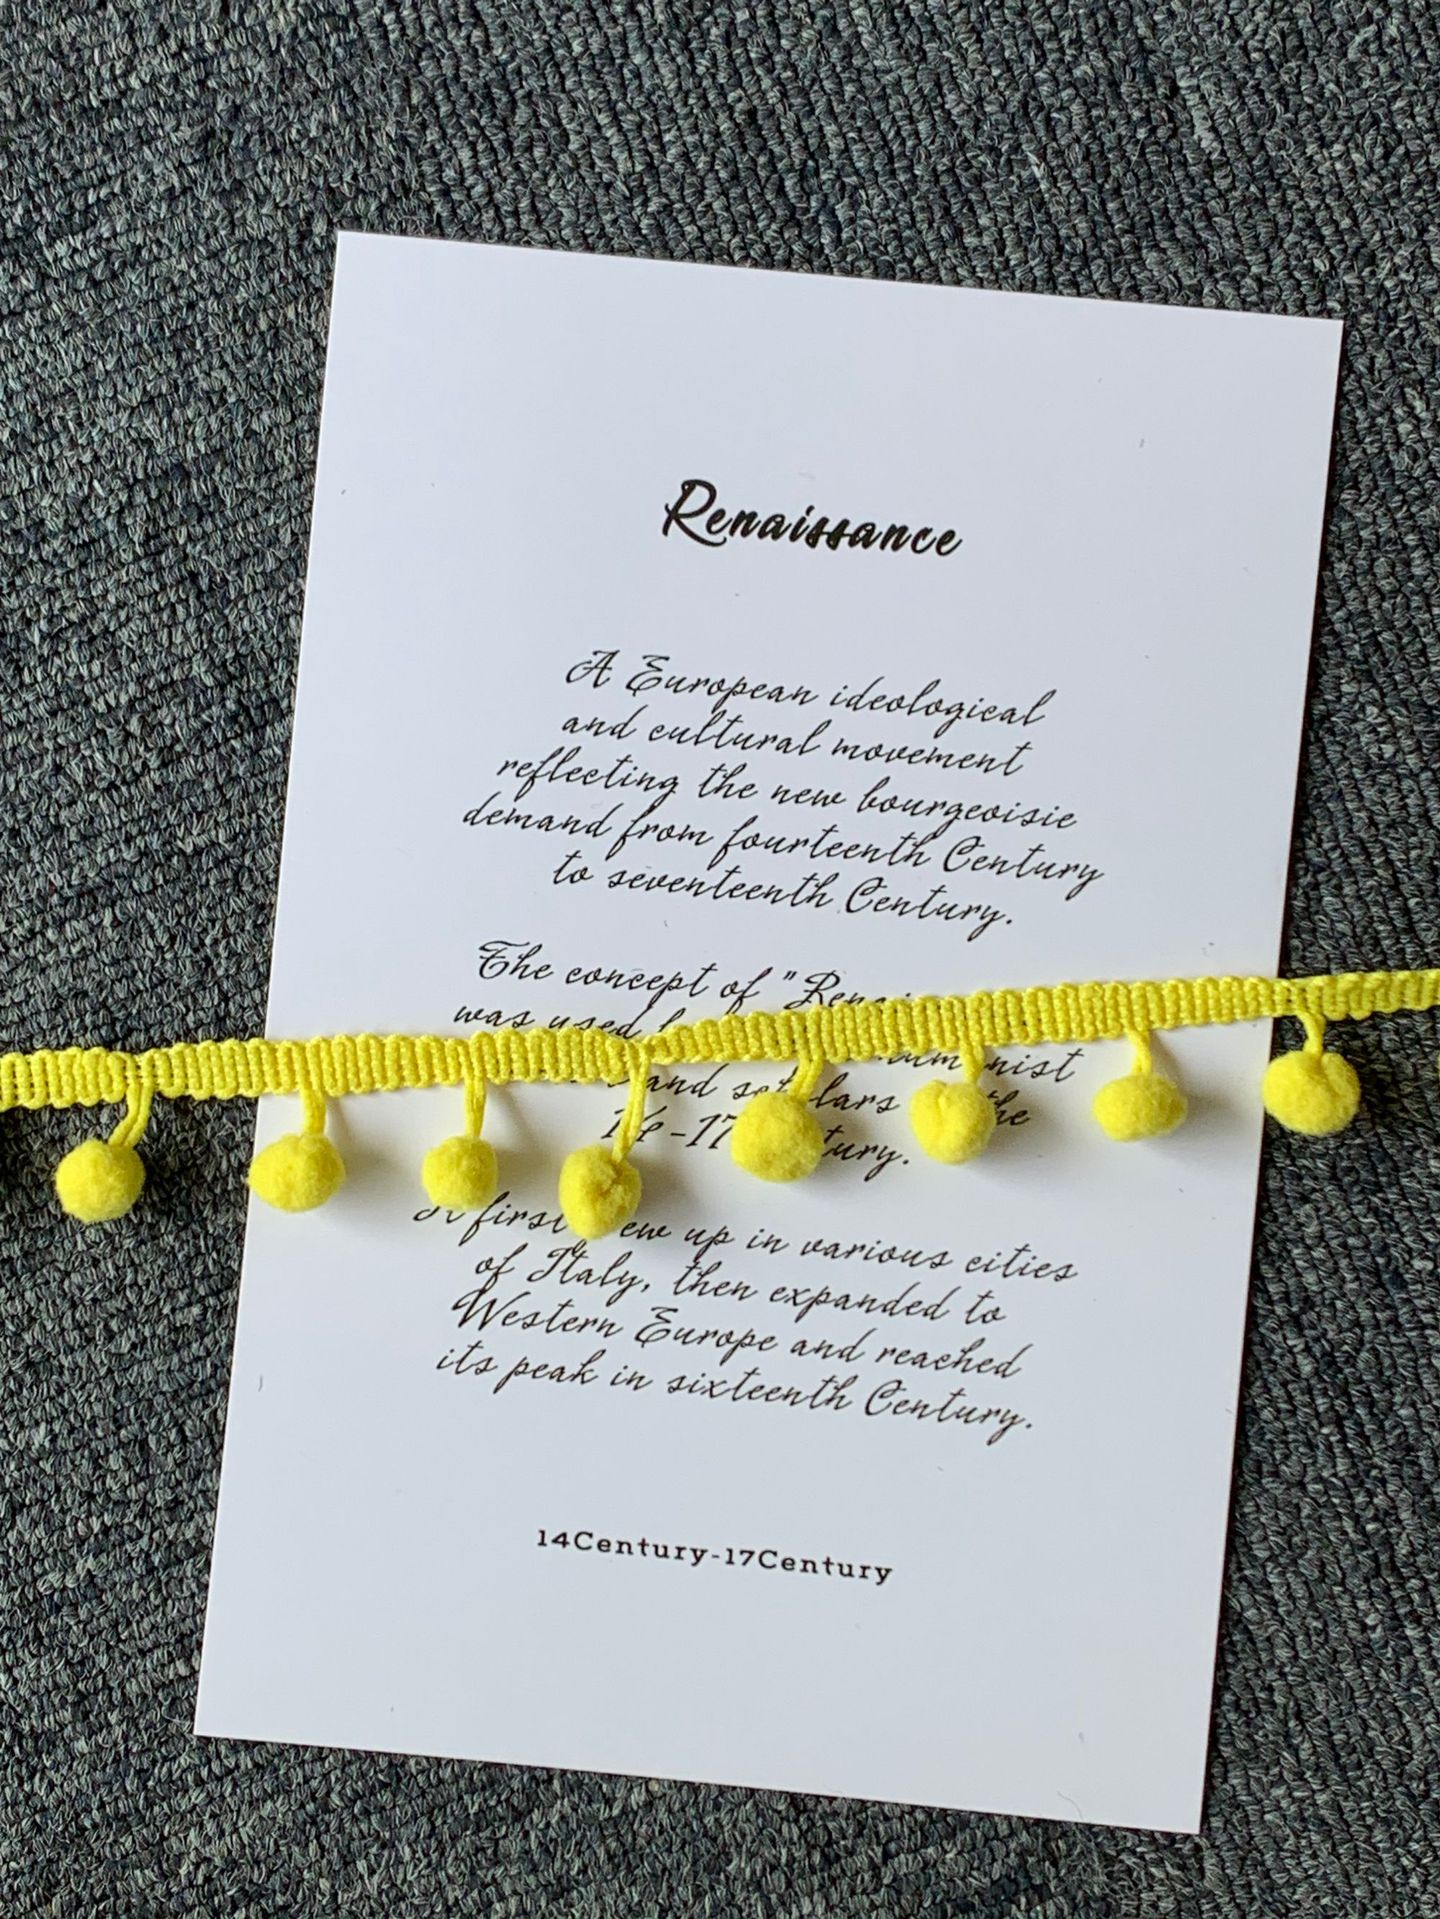 Renaissance
A European ideological
and cultural movement
reflecting the new bourgeoisie
demand from fourteenth Century
to seventeenth Century.
The concept of "
was used
and
the
first up in various cities
of Italy, then expanded to
Western Europe and reached
its peak in sixteenth Century.
14Century-17Century